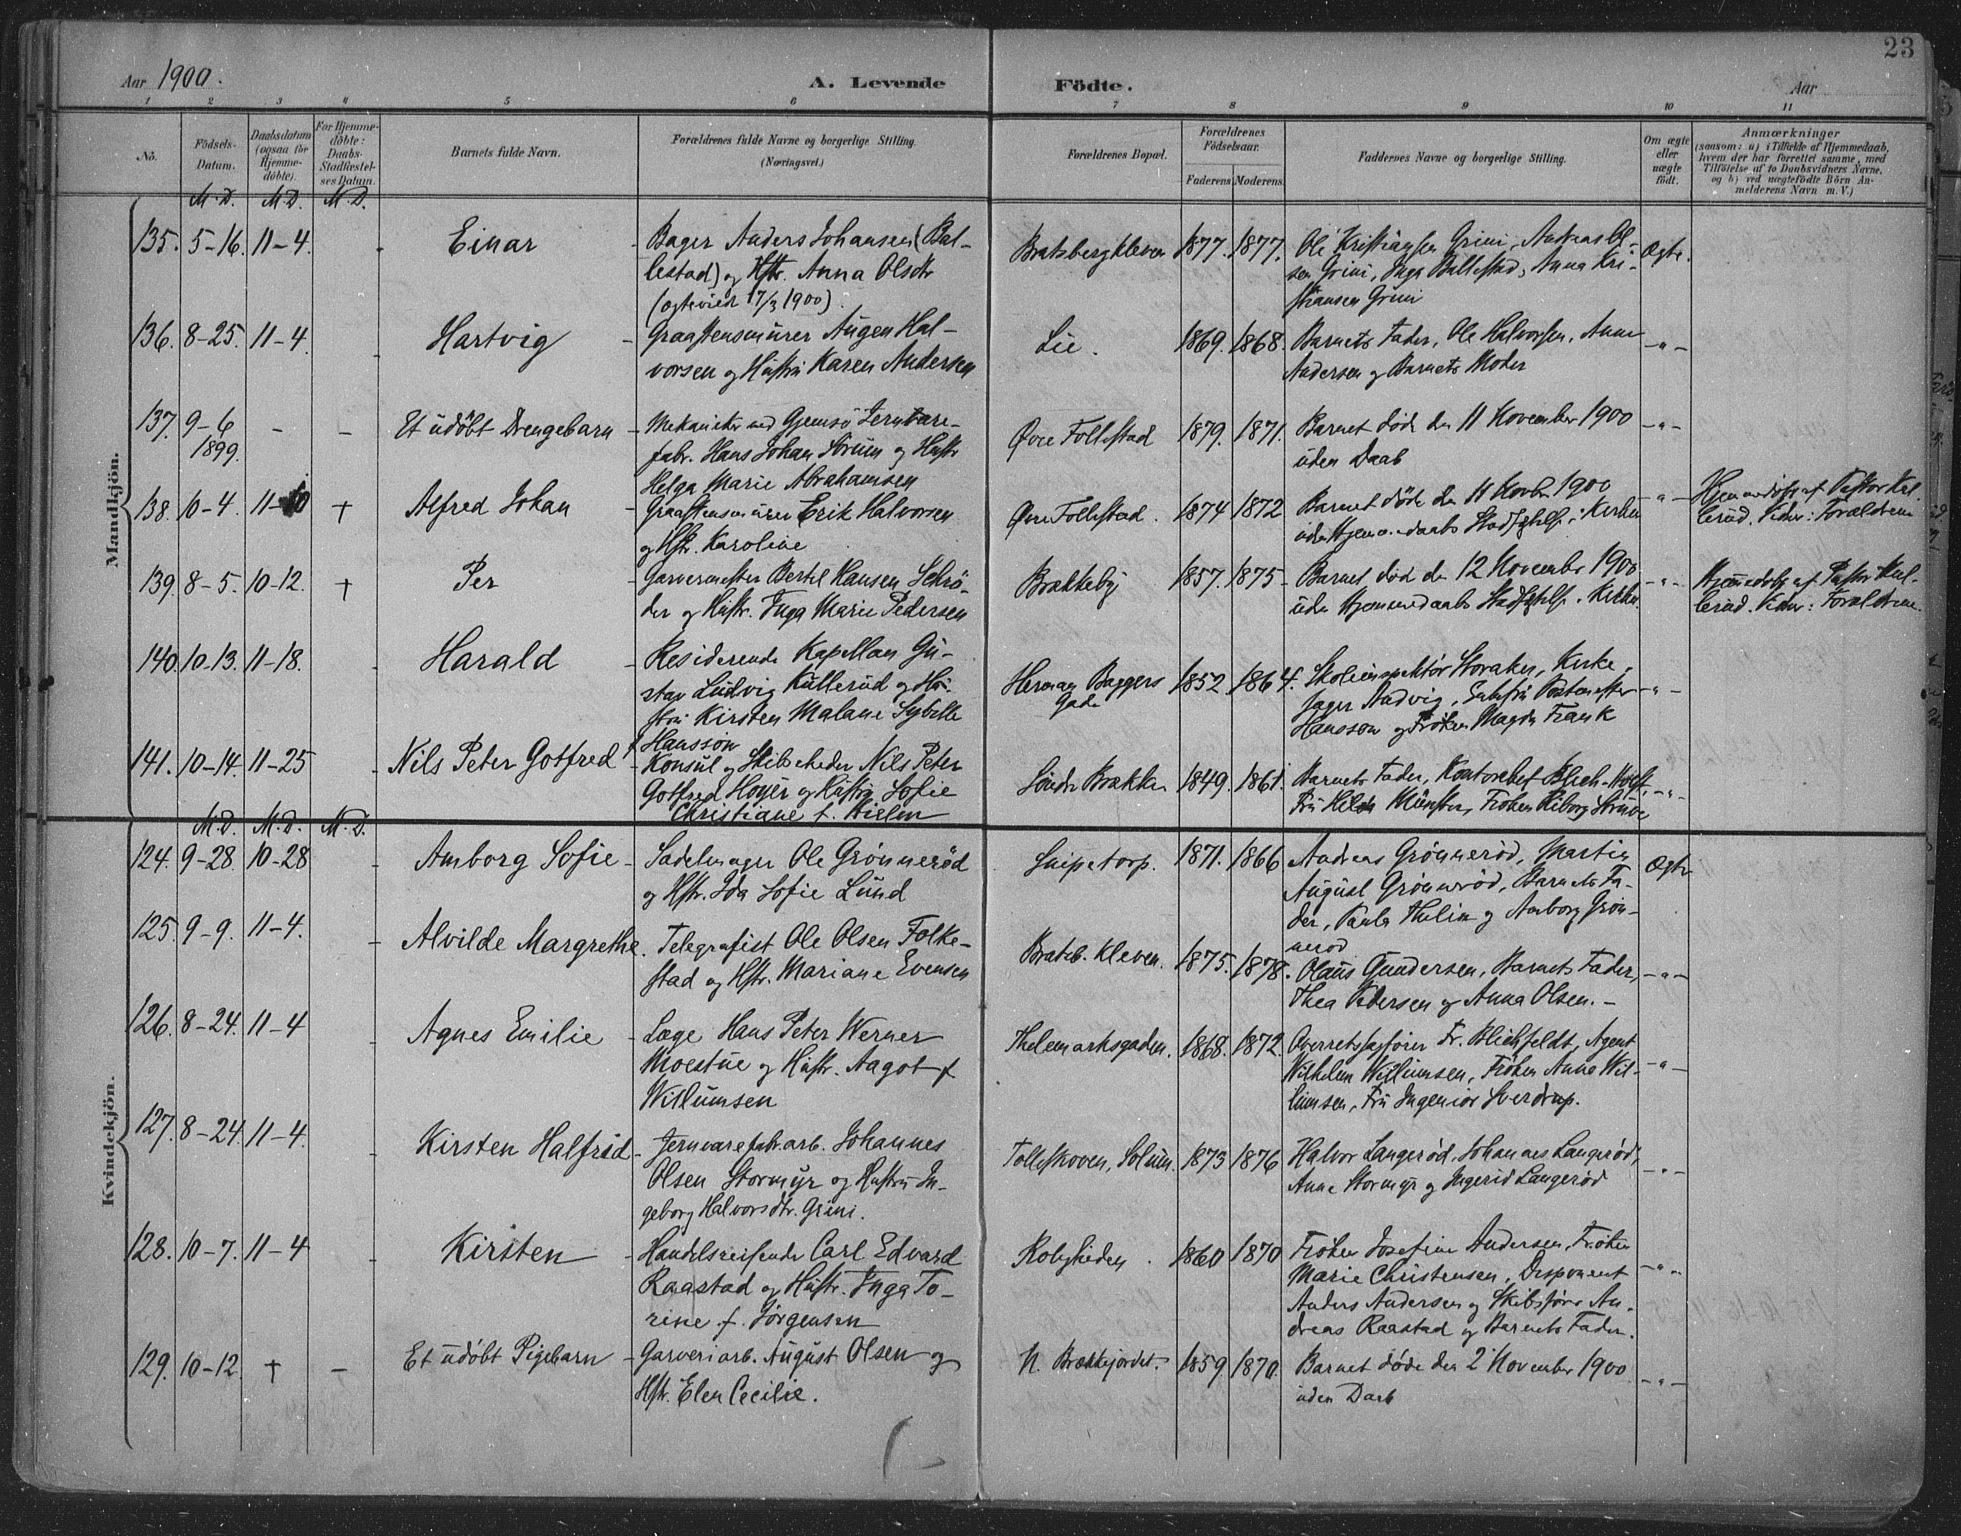 23
Aar 1900.
A. Levende Födte.
Aar
1 2 3 4 5 6 7 8 9 10 11
No.
Födsels-Datum.
Daabsdatum (ogsaa for Hjemme-döbte).
For Hjemme-döbte: Daabs-Stadfæstel-ses Datum.
Barnets fulde Navn.
Forældrenes fulde Navne og borgerlige Stilling. (Næringsvei.)
Forældrenes Bopæl.
Forældrenes Födselsaar.
Faderens Moderens
Faddernes Navne og borgerlige Stilling.
Om ægte eller uægte födt.
Anmærkninger
(saasom: a) i Tilfælde af Hjemmedaab, hvem der har forrettet samme, med Tilföielse af to Daabsvidners Navne, og b) ved uægtefödte Börn An-melderens Navn m. V.)
M. D. M. D. M. D.
Mandkjön.
135. 5-16. 11-4. Einar
Bager Anders Johansen (Bal-
lestad) og Hstr. Anna Olsdtr
(ægteviet 17/3 1900).
Bratsbergkleven 1877. 1877.
Ole Kristiansen Grini, Andreas Ol-
sen Grini, Inga Ballestad, Anna Kri-
stiansen Grini
Ægte.
136. 8-25. 11-4. - Hartvig -
Graastensmurer Augen Hal-
vorsen og Hustru Karen Andersen
Lie. 1869. 1868.
Barnets Fader, Ole Halvorsen, Anne
Andersen og Barnets Moder
-"-
137. 9-6 1899. - - Et udöbt Drengebarn -
Mekaniker ved Gjemsö Jernvare-
fabr. Hans Johan Sörum og Hustr
Helga Marie Abrahamsen
Övre Follestad 1879. 1871.
Barnet döde den 11 November 1900
uden Daab
-"-
138. 10-4. 11-10 + Alfred Johan -
Graastensmurer Erik Halvorsen
og Hstr. Karoline
Övre Follestad. 1874 1872
Barnet döde den 11 Novbr 1900
uden Hjemmedaabs Stadfæstelse i Kirken
-"-
Hjemmedöbt af Pastor Kul-
lerud. Vidner: Forældrene
139. 8-5. 10-12. + Per -
Garvermester Bertel Hansen Schrö-
der og Hustr. Inga Marie Pedersen
Brækkeby 1857. 1875 -
Barnet död den 12 November 1900
uden Hjemmedaabs Stadfæstelse i Kirken.
-"-
Hjemmedöbt af Pastor Kul-
lerud. Vidner: Forældrene.
140. 10-13. 11-18. - Harald -
Residerende Kapellan Gu-
stav Ludvig Kullerud og Hu-
stru Kirsten Malane Sybille
Hansson
Herman Baggers
Gade 1852. 1864.
Skoleinspektör Storaker, Kirke-
sager Andvig, Enkefru Postmester
Hansson og Fröken Magda Frank
-"-
141. 10-14. 11-25 - Nils Peter Gotfred -
Konsul og Skibsrheder Nils Peter
Gotfred Höyer og Hustru Sofie
Christiane f. Nielsen
Söndre Brække 1849. 1861.
Barnets Fader,
Fru Hilda Münster, Fröken
-"-
M. D. M. D. M. D.
Kvindekjön.
124. 9-28. 10-28 - Amborg Sofie -
Sadelmager Ole Grönneröd
og Hstr. Ida Sofie Lund
Snipetorp. 1871. 1866
Andreas Grönneröd, Martin
August Grönneröd, Barnets Fa-
der, Paula Thelin og Amborg Grön-
neröd
Ægte
125. 9-9. 11-4. - Alvilde Margrethe.
Telegrafist Ole Olsen Folke-
stad og Hstr. Mariane Evensen
Bratsb.kleven. 1875. 1878.
Olaus Gundersen, Barnets Fader,
Thea Pedersen og Anna Olsen. -
-"-
126. 8-24. 11-4 - Agnes Emilie -
Læge Hans Peter Werner
Moestue og Hustr. Aagot f.
Willumsen
Thelemarksgaden. 1868. 1872.
Overretssagförer Fr. Blichfeldt, Agent
Wilhelm Willumsen, Fröken Anna Wil-
lumsen, Fru Ingeniör Sverdrup.
-"-
127. 8-24. 11-4. - Kirsten Halfrid -
Jernvarefabr.arb. Johannes
Olsen Stormyr og Hustru In-
geborg Halvorsdtr. Grini.
Folleskoven, Solum. 1873 1876
Halvor Langeröd, Johannes Langeröd,
Anne Stormyr og Ingerid Langeröd
-"-
128. 10-7. 11-4 - Kirsten -
Handelsreisende Carl Edvard
Raastad og Hustr. Inga To-
rine f. Jörgensen
Roligheden. 1860 1870
Fröken Josefine Andersen, Fröken
Marie Christensen, Disponent
Anders Andersen og Skibsförer An-
dreas Raastad og Barnets Fader.
-"-
129. 10-12. + - Et udöbt Pigebarn -
Garveriarb. August Olsen og
Hstr. Elen Cecilie.
N. Brækkejordet. 1859 1870.
Barnet döde den 2 November 1900
uden Daab
-"-